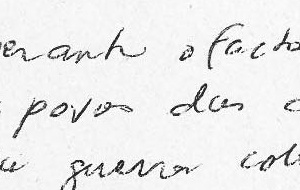 perante o facto
povos das
guerra col